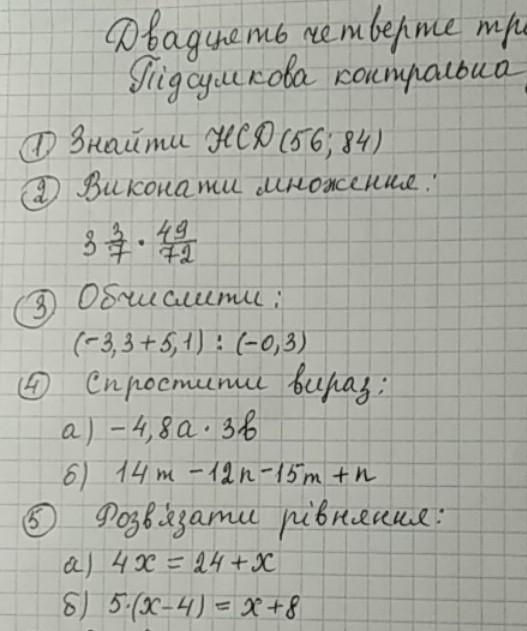 Двадцять четверте
Підсумкова контрольна
① Знайти НСД (56; 84)
② Виконати множення:
3 3/7 · 49/72
③ Обчислити:
(-3,3 + 5,1) : (-0,3)
④ Спростити вираз:
а) -4,8a · 3b
б) 14m - 12n - 15m + n
⑤ Розв'язати рівняння:
а) 4x = 24 + x
б) 5·(x-4) = x + 8